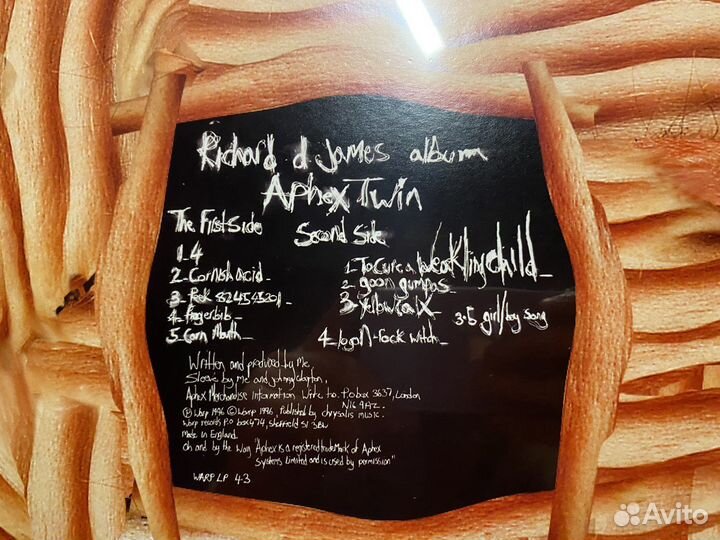 Richard d James album
Aphex Twin
The First Side
1. 4
2 - Cornish acid -
3 - Peek 824545201 -
4 - fingerbib -
5 - Corn Mouth -
Second Side
1 - To Cure a Weakling child -
2 - goon gumpas -
3 - Yellow Calx -
3.5 girl/boy song
4 - logon - rock witch -
Written and produced by Me.
Sleeve by me and johnny clayton.
Aphex Merchandise Information Write to. P.O box 3637, London
N16 9AZ.
Ⓟ Warp 1996 © Warp 1996, Published by chrysalis music.
Warp records P.O box 474, sheffield S1 3BW
Made in England.
oh and by the way "Aphex is a registered tradeMark of Aphex
Systems Limited and is used by permission"
WARP LP 43
Avito